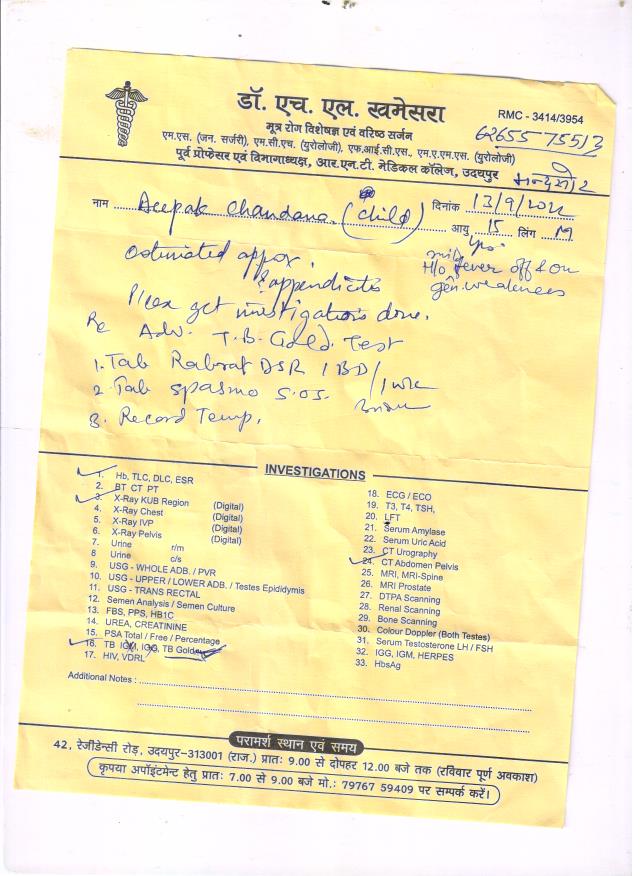 डॉ. एच. एल. खमेसरा
RMC - 3414/3954
मूत्र रोग विशेषज्ञ एवं वरिष्ठ सर्जन
एम.एस. (जन. सर्जरी), एम.सी.एच. (यूरोलोजी), एफ.आई.सी.एस., एम.ए.एम.एस. (यूरोलोजी)
पूर्व प्रोफेसर एवं विभागाध्यक्ष, आर.एन.टी. मेडिकल कॉलेज, उदयपुर
नाम Deepak Chandana (child) दिनांक 13/9/2022
आयु 15 yrs. लिंग M
H/o fever off & on
gen. weakness
appendicitis
Please get investigations done.
Adv. T.B. Gold Test
1. Tab Rabraf DSR 1 BD
2. Tab Spasmo S.O.S.
3. Record Temp.
INVESTIGATIONS
1. Hb, TLC, DLC, ESR
2. BT CT PT
3. X-Ray KUB Region (Digital)
4. X-Ray Chest (Digital)
5. X-Ray IVP (Digital)
6. X-Ray Pelvis (Digital)
7. Urine r/m
8 Urine c/s
9. USG - WHOLE ADB. / PVR
10. USG - UPPER / LOWER ADB. / Testes Epididymis
11. USG - TRANS RECTAL
12. Semen Analysis / Semen Culture
13. FBS, PPS, HB1C
14. UREA, CREATININE
15. PSA Total / Free / Percentage
16. TB IGM, IGG, TB Gold
17. HIV, VDRL
18. ECG / ECO
19. T3, T4, TSH,
20. LFT
21. Serum Amylase
22. Serum Uric Acid
23. CT Urography
24. CT Abdomen Pelvis
25. MRI, MRI-Spine
26. MRI Prostate
27. DTPA Scanning
28. Renal Scanning
29. Bone Scanning
30. Colour Doppler (Both Testes)
31. Serum Testosterone LH / FSH
32. IGG, IGM, HERPES
33. HbsAg
Additional Notes :
परामर्श स्थान एवं समय
42, रेजीडेन्सी रोड़, उदयपुर-313001 (राज.) प्रातः 9.00 से दोपहर 12.00 बजे तक (रविवार पूर्ण अवकाश)
कृपया अपॉइंटमेन्ट हेतु प्रातः 7.00 से 9.00 बजे मो.: 79767 59409 पर सम्पर्क करें।